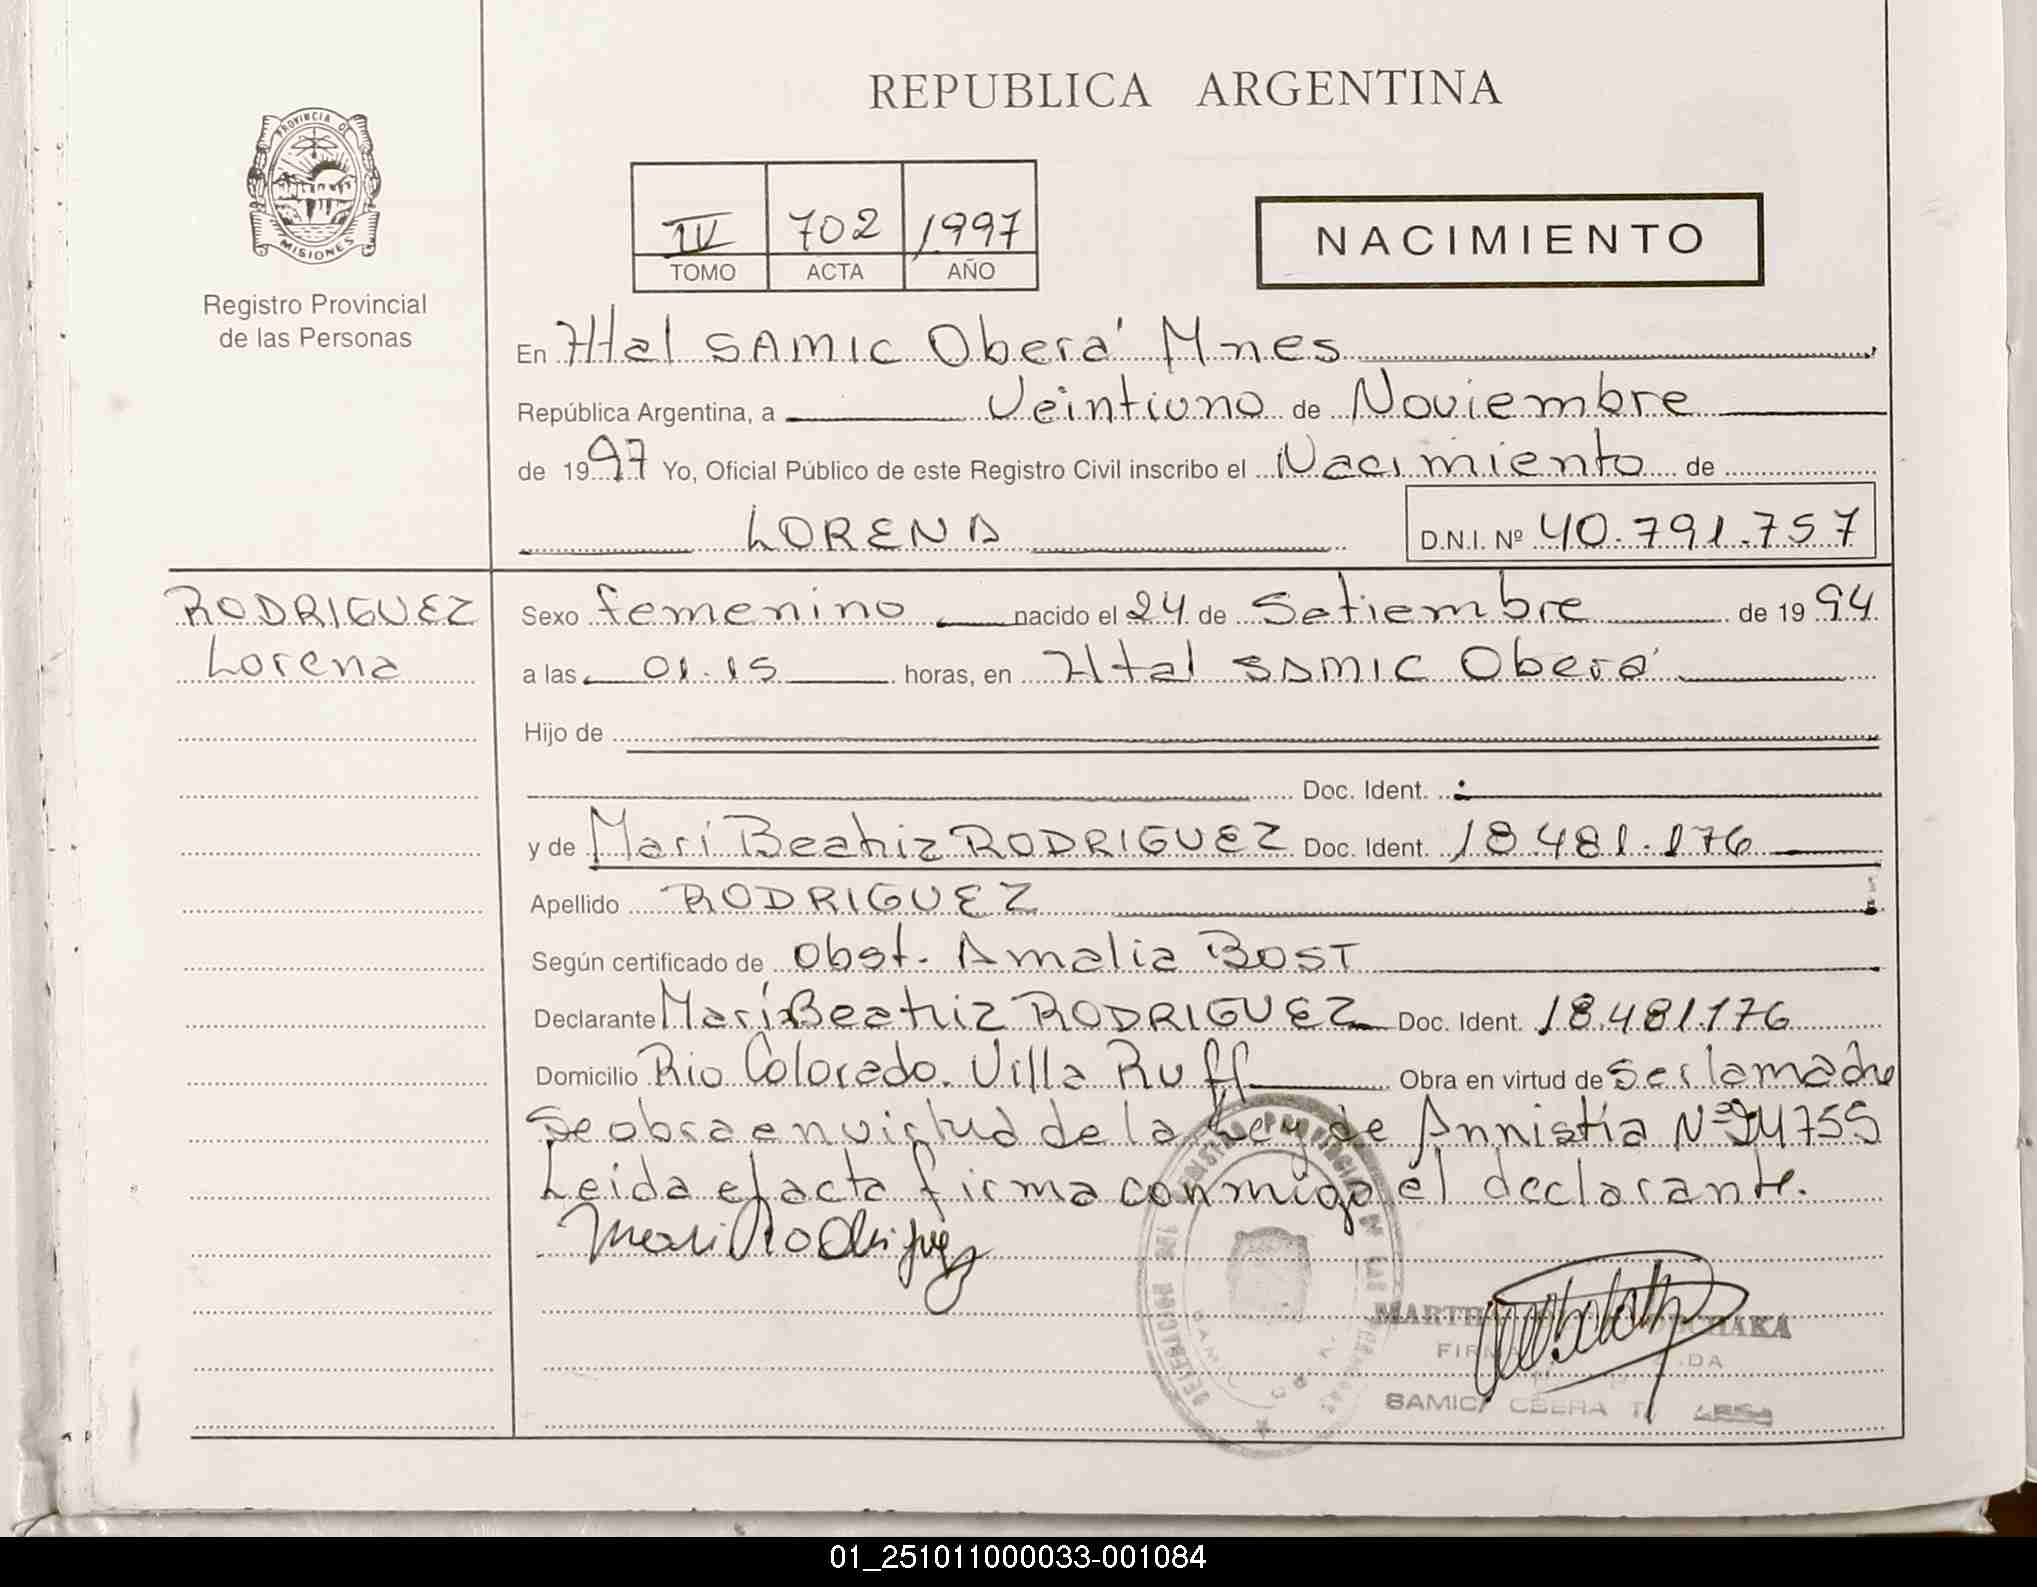 REPUBLICA ARGENTINA
PROVINCIA DE
MISIONES
Registro Provincial
de las Personas
IV 702 1997
TOMO ACTA AÑO
NACIMIENTO
En Htal SAMIC Oberá Mnes
República Argentina, a Veintiuno de Noviembre
de 1997 Yo, Oficial Público de este Registro Civil inscribo el Nacimiento de
LORENA D.N.I. Nº 40.791.757
RODRIGUEZ
Lorena
Sexo femenino nacido el 24 de Setiembre de 1994
a las 01.15 horas, en Htal SAMIC Oberá
Hijo de
Doc. Ident.
y de Mari Beatriz RODRIGUEZ Doc. Ident. 18.481.176
Apellido RODRIGUEZ
Según certificado de Obst. Amalia BOST
Declarante Mari Beatriz RODRIGUEZ Doc. Ident. 18.481.176
Domicilio Rio Colorado. Villa Ruff Obra en virtud de ser la madre
Se obra en virtud de la Ley de Annistía Nº 24755
Leida el acta firma conmigo el declarante.
Mari Rodriguez
MARTH CHAKA
FIRMA DA
SAMIC OBERA
01_251011000033-001084